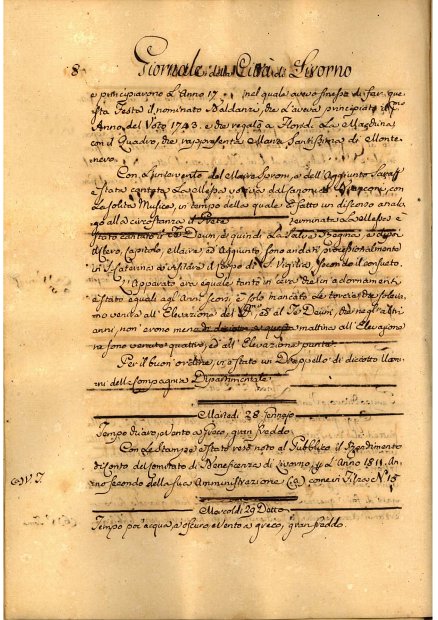 8 Giornale della Città di Livorno
e principiarono L'Anno 17   nel quale aveva finessa di far que
sta Festa il nominato Baldanzi, che L'aveva principiata il pmo
Anno del Voto 1743. e che regalò a Florid. La Macchina
con il Quadro, che rappresenta Maria Santissima di Monte-
nero.
Con L'intervento del Maire Sproni, e dell'Aggiunto
È stata cantata La Messa votiva dal Canonico con
La solita Musica, in tempo della quale è fatto un discorso analo
go alla circostanza il Prete   terminata La Messa è
stato cantato il Te Deum, e quindi La Salve Regina, e dopo
il Clero, Capitolo, Maire, ed Aggiunto, sono andati processionalmente
in S. Caterina a visitare il Corpo di S. Vigilia, secondo il consueto.
L'Apparato era equale tanto in cera che in adornamenti,
è stato equale agl'Anni scorsi, è solo mancato Le torcie, che soleva
no venire all'Elevazione del Smo, ed al Te Deum, che negl'altri
anni, non erono meno di questa mattina all'Elevazione
ne sono venute quattro, ed all'Elevazione punte.
Per il buon ordine, vi è stato un Drappello di diciotto Uo
mini della Compagnia Dipartimentale
Martedì 28 Gennajo
Tempo chiaro, e Vento a Greco, gran freddo
Con Le Stampe è stato reso noto al Pubblico il Rendimento
di Conto del Comitato di Beneficenza di Livorno, p. L'Anno 1811. An-
no secondo della sua Amministrazione come in Filza N. 15
Mercoledì 29 Detto
Tempo poc'acqua, e oscuro, e Vento a greco, gran freddo.